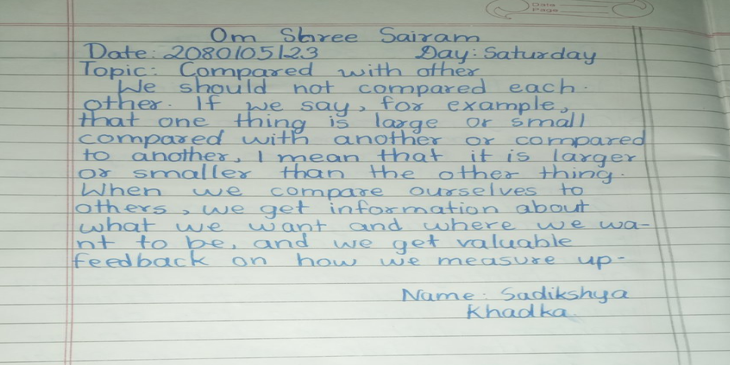 Date
Page
Om Shree Sairam
Date: 2080/05/23 Day: Saturday
Topic: Compared with other
We should not compared each
other. If we say, for example,
that one thing is large or small
compared with another or compared
to another, I mean that it is larger
or smaller than the other thing.
When we compare ourselves to
others, we get information about
what we want and where we wa-
nt to be, and we get valuable
feedback on how we measure up-
Name: Sadikshya
Khadka